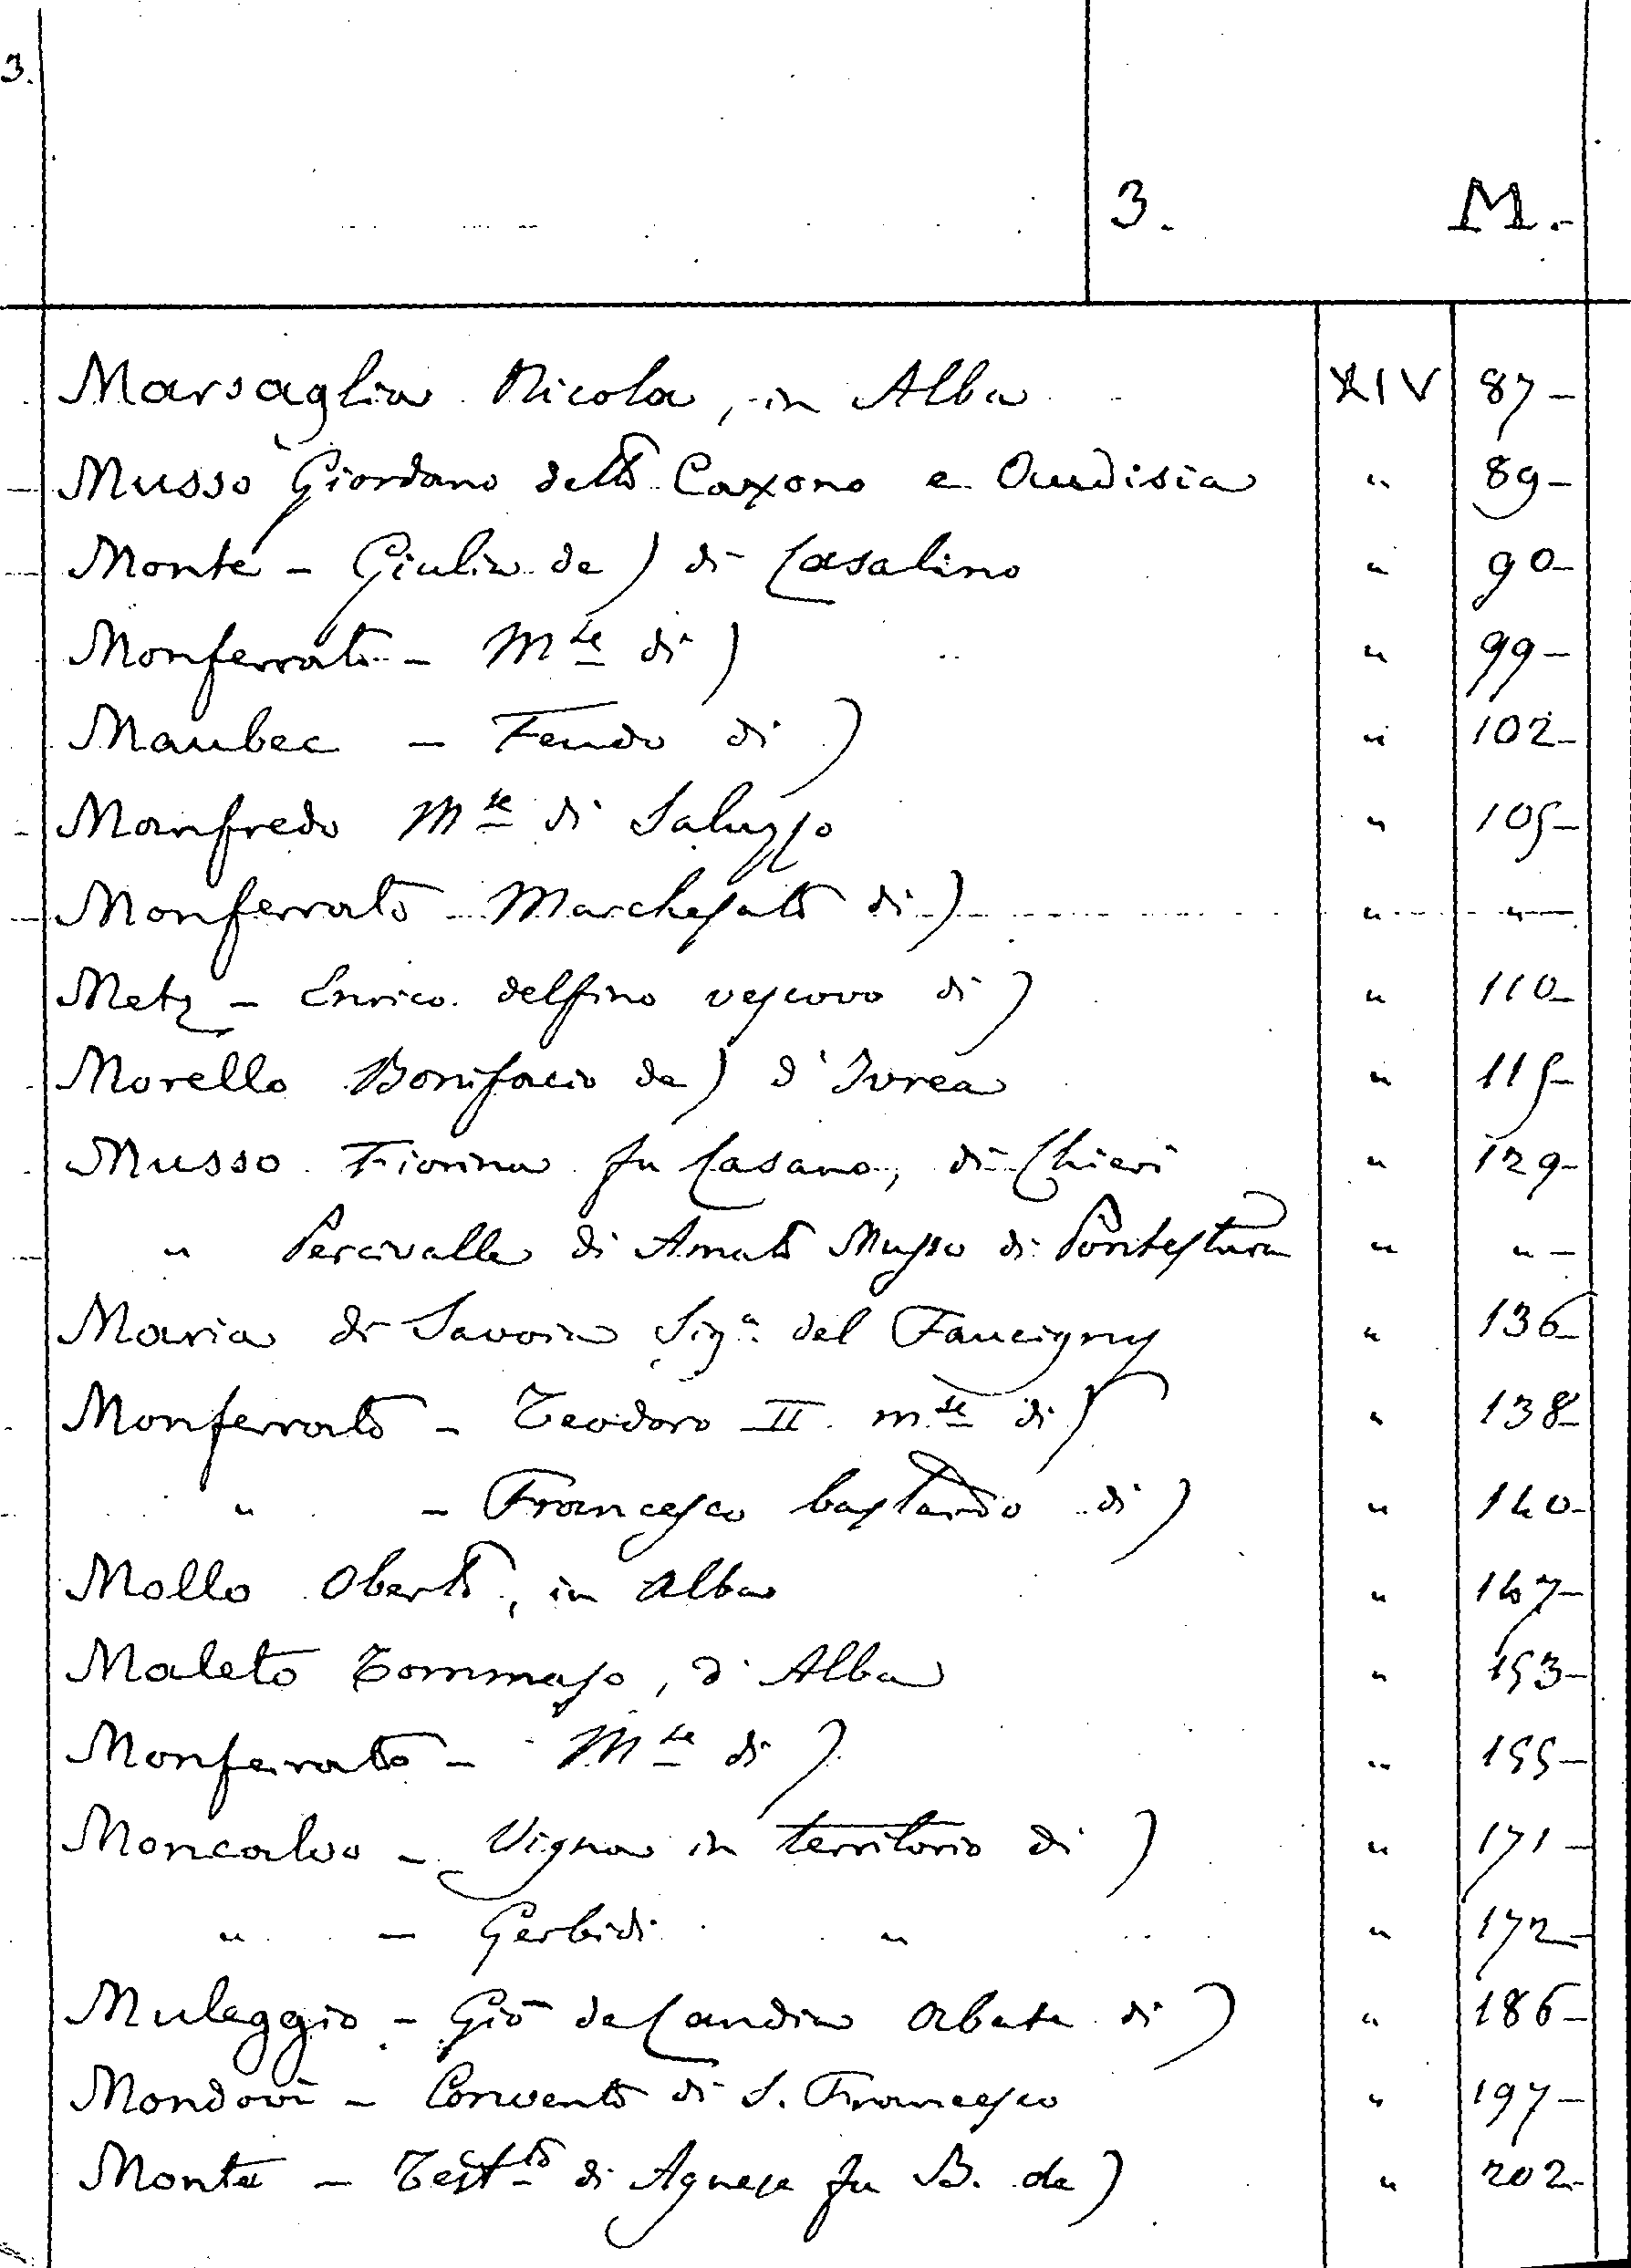 3.
3. M.-
Marsaglia Nicola, in Alba XIV 87-
Musso Giordano detto Caxono e Audisia " 89-
Monte - Giulia de) di Casalino " 90-
Monferrato - Mse di) " 99-
Maubec - Feudo di) " 102-
Manfredo Mse di Saluzzo " 105-
Monferrato Marchesato di) " "-
Metz - Enrico delfino vescovo di) " 110-
Morello Bonifacio de) d'Ivrea " 115-
Musso Fiorina fu Casano, di Chieri " 129-
" Percivalle di Amato Musso di Pontestura " "-
Maria di Savoia Siga del Faucigny " 136-
Monferrato - Teodoro II mse di) " 138-
" - Francesco bastardo di) " 140-
Mollo Oberto, in Alba " 147-
Maleto Tommaso, d'Alba " 153-
Monferrato - Mse di) " 155-
Moncalvo - Vigna in territorio di) " 171-
" - Gerbidi " " 172-
Muleggio - Gio de Candia Abate di) " 186-
Mondovì - Convento di S. Francesco " 197-
Monte - Testto di Agnese fu B. de) " 202-